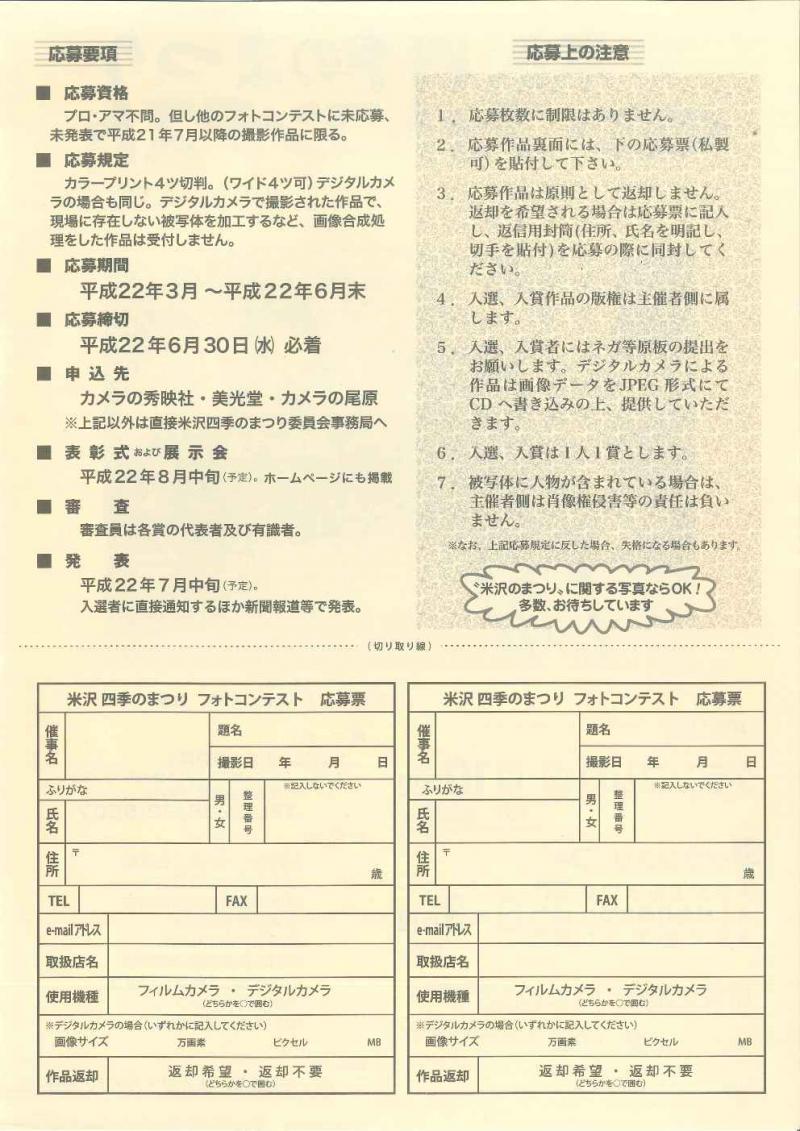 応募要項
■ 応募資格
プロ・アマ不問。但し他のフォトコンテストに未応募、
未発表で平成21年7月以降の撮影作品に限る。
■ 応募規定
カラープリント4ツ切判。(ワイド4ツ可)デジタルカメ
ラの場合も同じ。デジタルカメラで撮影された作品で、
現場に存在しない被写体を加工するなど、画像合成処
理をした作品は受付しません。
■ 応募期間
平成22年3月 〜平成22年6月末
■ 応募締切
平成22年6月30日㈬ 必着
■ 申込先
カメラの秀映社・美光堂・カメラの尾原
※上記以外は直接米沢四季のまつり委員会事務局へ
■ 表彰式および展示会
平成22年8月中旬(予定)。ホームページにも掲載
■ 審 査
審査員は各賞の代表者及び有識者。
■ 発 表
平成22年7月中旬(予定)。
入選者に直接通知するほか新聞報道等で発表。
応募上の注意
1. 応募枚数に制限はありません。
2. 応募作品裏面には、下の応募票(私製
可)を貼付して下さい。
3. 応募作品は原則として返却しません。
返却を希望される場合は応募票に記入
し、返信用封筒(住所、氏名を明記し、
切手を貼付)を応募の際に同封してく
ださい。
4. 入選、入賞作品の版権は主催者側に属
します。
5. 入選、入賞者にはネガ等原板の提出を
お願いします。デジタルカメラによる
作品は画像データをJPEG 形式にて
CD へ書き込みの上、提供していただ
きます。
6. 入選、入賞は1人1賞とします。
7. 被写体に人物が含まれている場合は、
主催者側は肖像権侵害等の責任は負い
ません。
※なお、上記応募規定に反した場合、失格になる場合もあります。
〝米沢のまつり〟に関する写真ならOK!
多数、お待ちしています
(切り取り線)
米沢 四季のまつり フォトコンテスト 応募票
催事名
題名
撮影日 年 月 日
ふりがな
氏名
男・女
整理番号
※記入しないでください
住所
〒
歳
TEL
FAX
e-mailアドレス
取扱店名
使用機種
フィルムカメラ ・ デジタルカメラ
(どちらかを○で囲む)
※デジタルカメラの場合(いずれかに記入してください)
画像サイズ 万画素 ピクセル MB
作品返却
返却希望 ・ 返却不要
(どちらかを○で囲む)
米沢 四季のまつり フォトコンテスト 応募票
催事名
題名
撮影日 年 月 日
ふりがな
氏名
男・女
整理番号
※記入しないでください
住所
〒
歳
TEL
FAX
e-mailアドレス
取扱店名
使用機種
フィルムカメラ ・ デジタルカメラ
(どちらかを○で囲む)
※デジタルカメラの場合(いずれかに記入してください)
画像サイズ 万画素 ピクセル MB
作品返却
返却希望 ・ 返却不要
(どちらかを○で囲む)